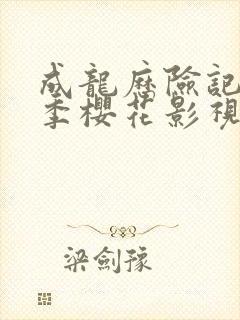 成龍歷險記
季櫻花影視
梁劍豫